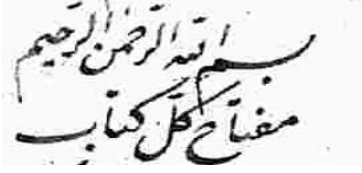 بسم الله الرحمن الرحیم
مفتاح کل کتاب